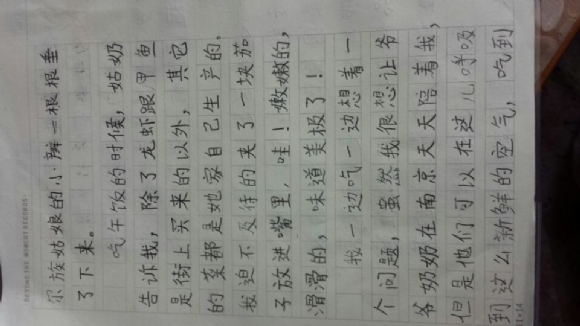 尔族姑娘的小辫一根根垂
了下来。
吃午饭的时候，姑奶
告诉我，除了龙虾跟甲鱼
是街上买来的以外，其它
的菜都是她家自己生产的，
我迫不及待的夹了一块茄
子放进嘴里，哇！嫩嫩的，
滑滑的，味道美极了！
我一边吃一边想着一
个问题，虽然我很想让爷
爷奶奶在南京天天陪着我，
但是他们可以在这儿呼吸
到这么新鲜的空气，吃到